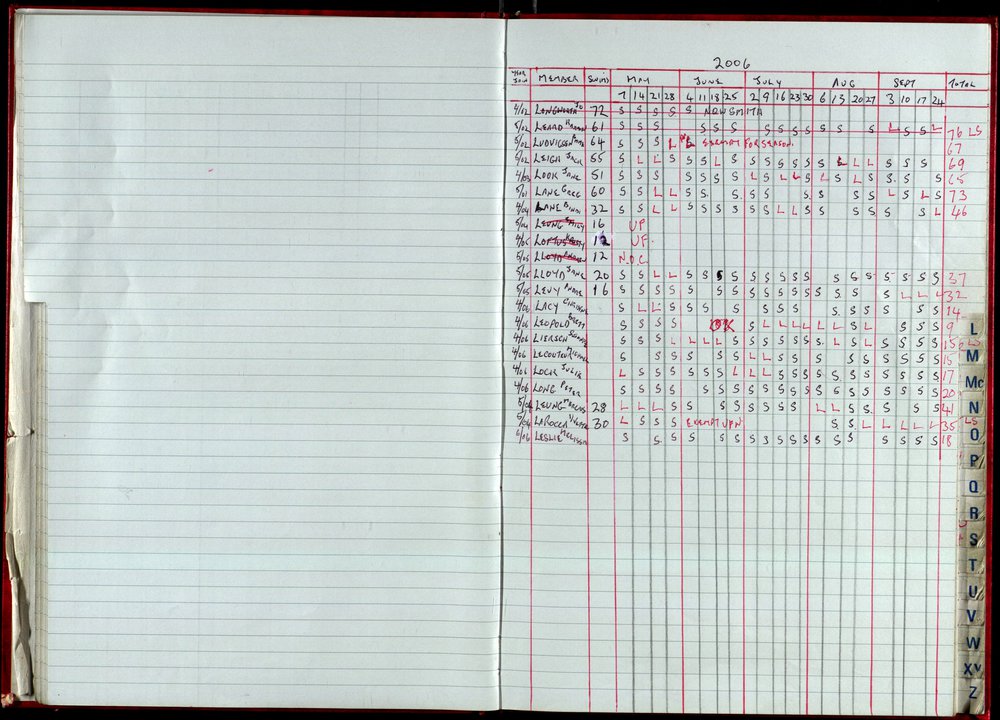 2006
YEAR JOIN MEMBER SWIMS MAY JUNE JULY AUG SEPT TOTAL
7 14 21 28 4 11 18 25 2 9 16 23 30 6 13 20 27 3 10 17 24
4/02 72 S S S S S NOW SMITH
5/02 LEARD 61 S S S S S S S S S S S S S L S S L 76 LS
5/02 LUDVIGSEN 64 S S S L L EXEMPT FOR SEASON. 67
5/02 LEIGH JACK 55 S L L S S S L S S S S S S S L L L S S S 69
4/03 LOOK JANE 51 S S S S S S S L S L L S L S L S S S S 65
5/01 LANE GREG 60 S S L L S S S S S S S S S L S L S 73
4/04 LANE BINDI 32 S S L L S S S S S S L L S S S S S S L 46
5/04 LEUNG EMILY 16 UF
4/05 LOFTUS 12 UF.
5/05 LLOYD 12 N.O.C.
5/05 LLOYD JANE 20 S S L L S S S S S S S S S S S S S S S S 37
5/05 LEVY ANNE 16 S S S S S S S S S S S S S S S S S L L L 32
4/06 LACY S L L S S S S S S S S S S S S S 14
4/06 LEOPOLD BRETT S S S S OK S L L L L L L S L S S S 9
4/06 S S S L L L L S S S S S S S L S L S S S S 15 LS
4/06 S S S S S S S L L S S S S S S S S S S 15
4/06 LOCK JULIE L S S S S S S L L L S S S S S S S S S S S 17
4/06 LONG PETER S S S S S S S S S S S S S S S S S S S S 20
LEUNG 28 L L L S S S S S S S S L L S S S S S 41
LAROCCA 30 L S S S EXEMPT S S L L L L L 35 LS
LESLIE MELISSA S S S S S S S S S S S S S S S S S S 18
L
M
Mc
N
O
P
Q
R
S
T
U
V
W
XY
Z